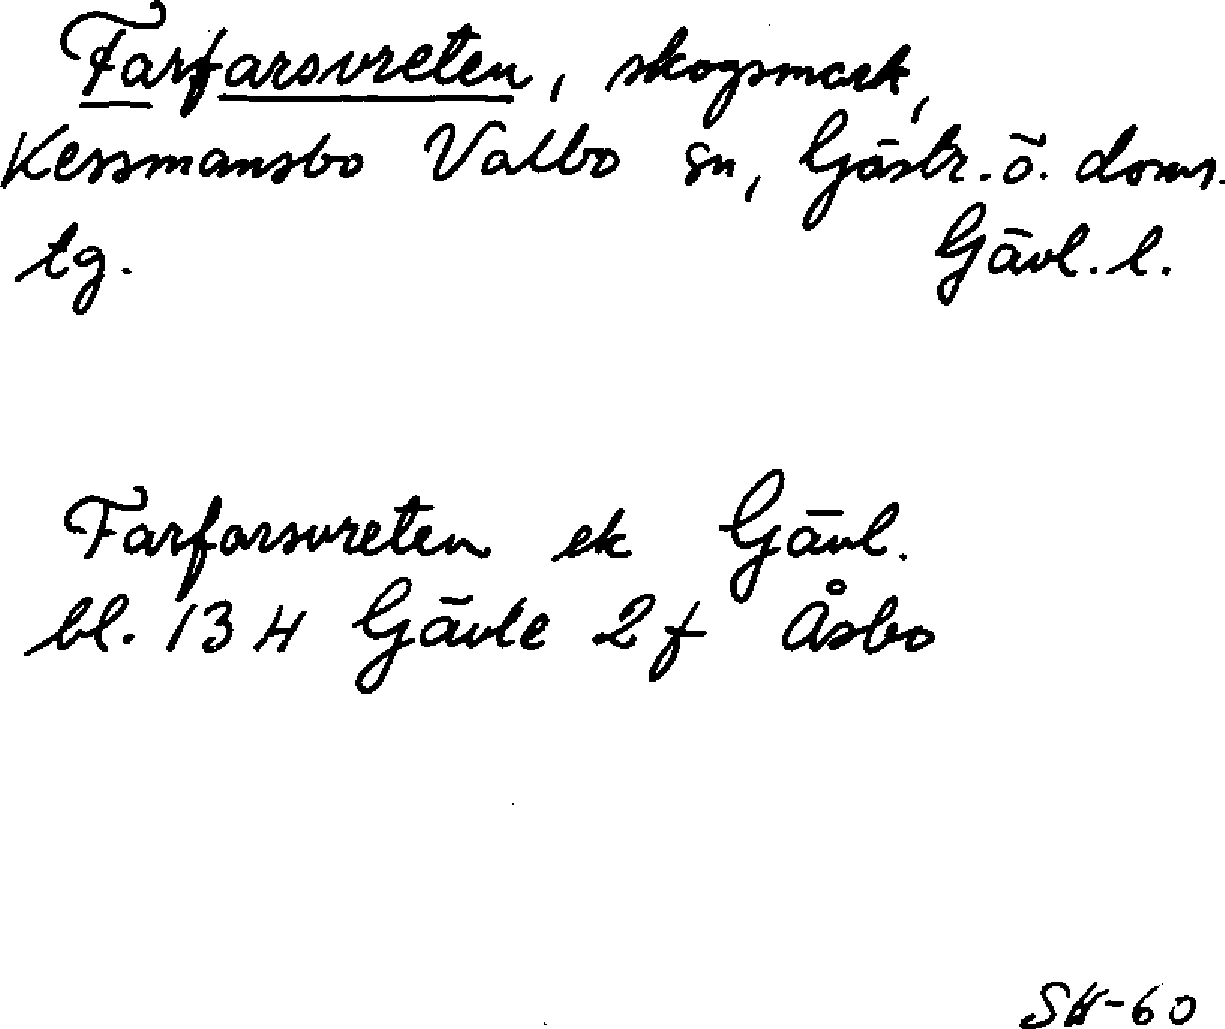 Farfarsvreten, skogsmark,
Kessmansbo Valbo sn, Gästr. ö. doms.
tg. Gävl. l.
Farfarsvreten ek Gävl.
bl. 13 H Gävle 2 f Åsbo
SH-60